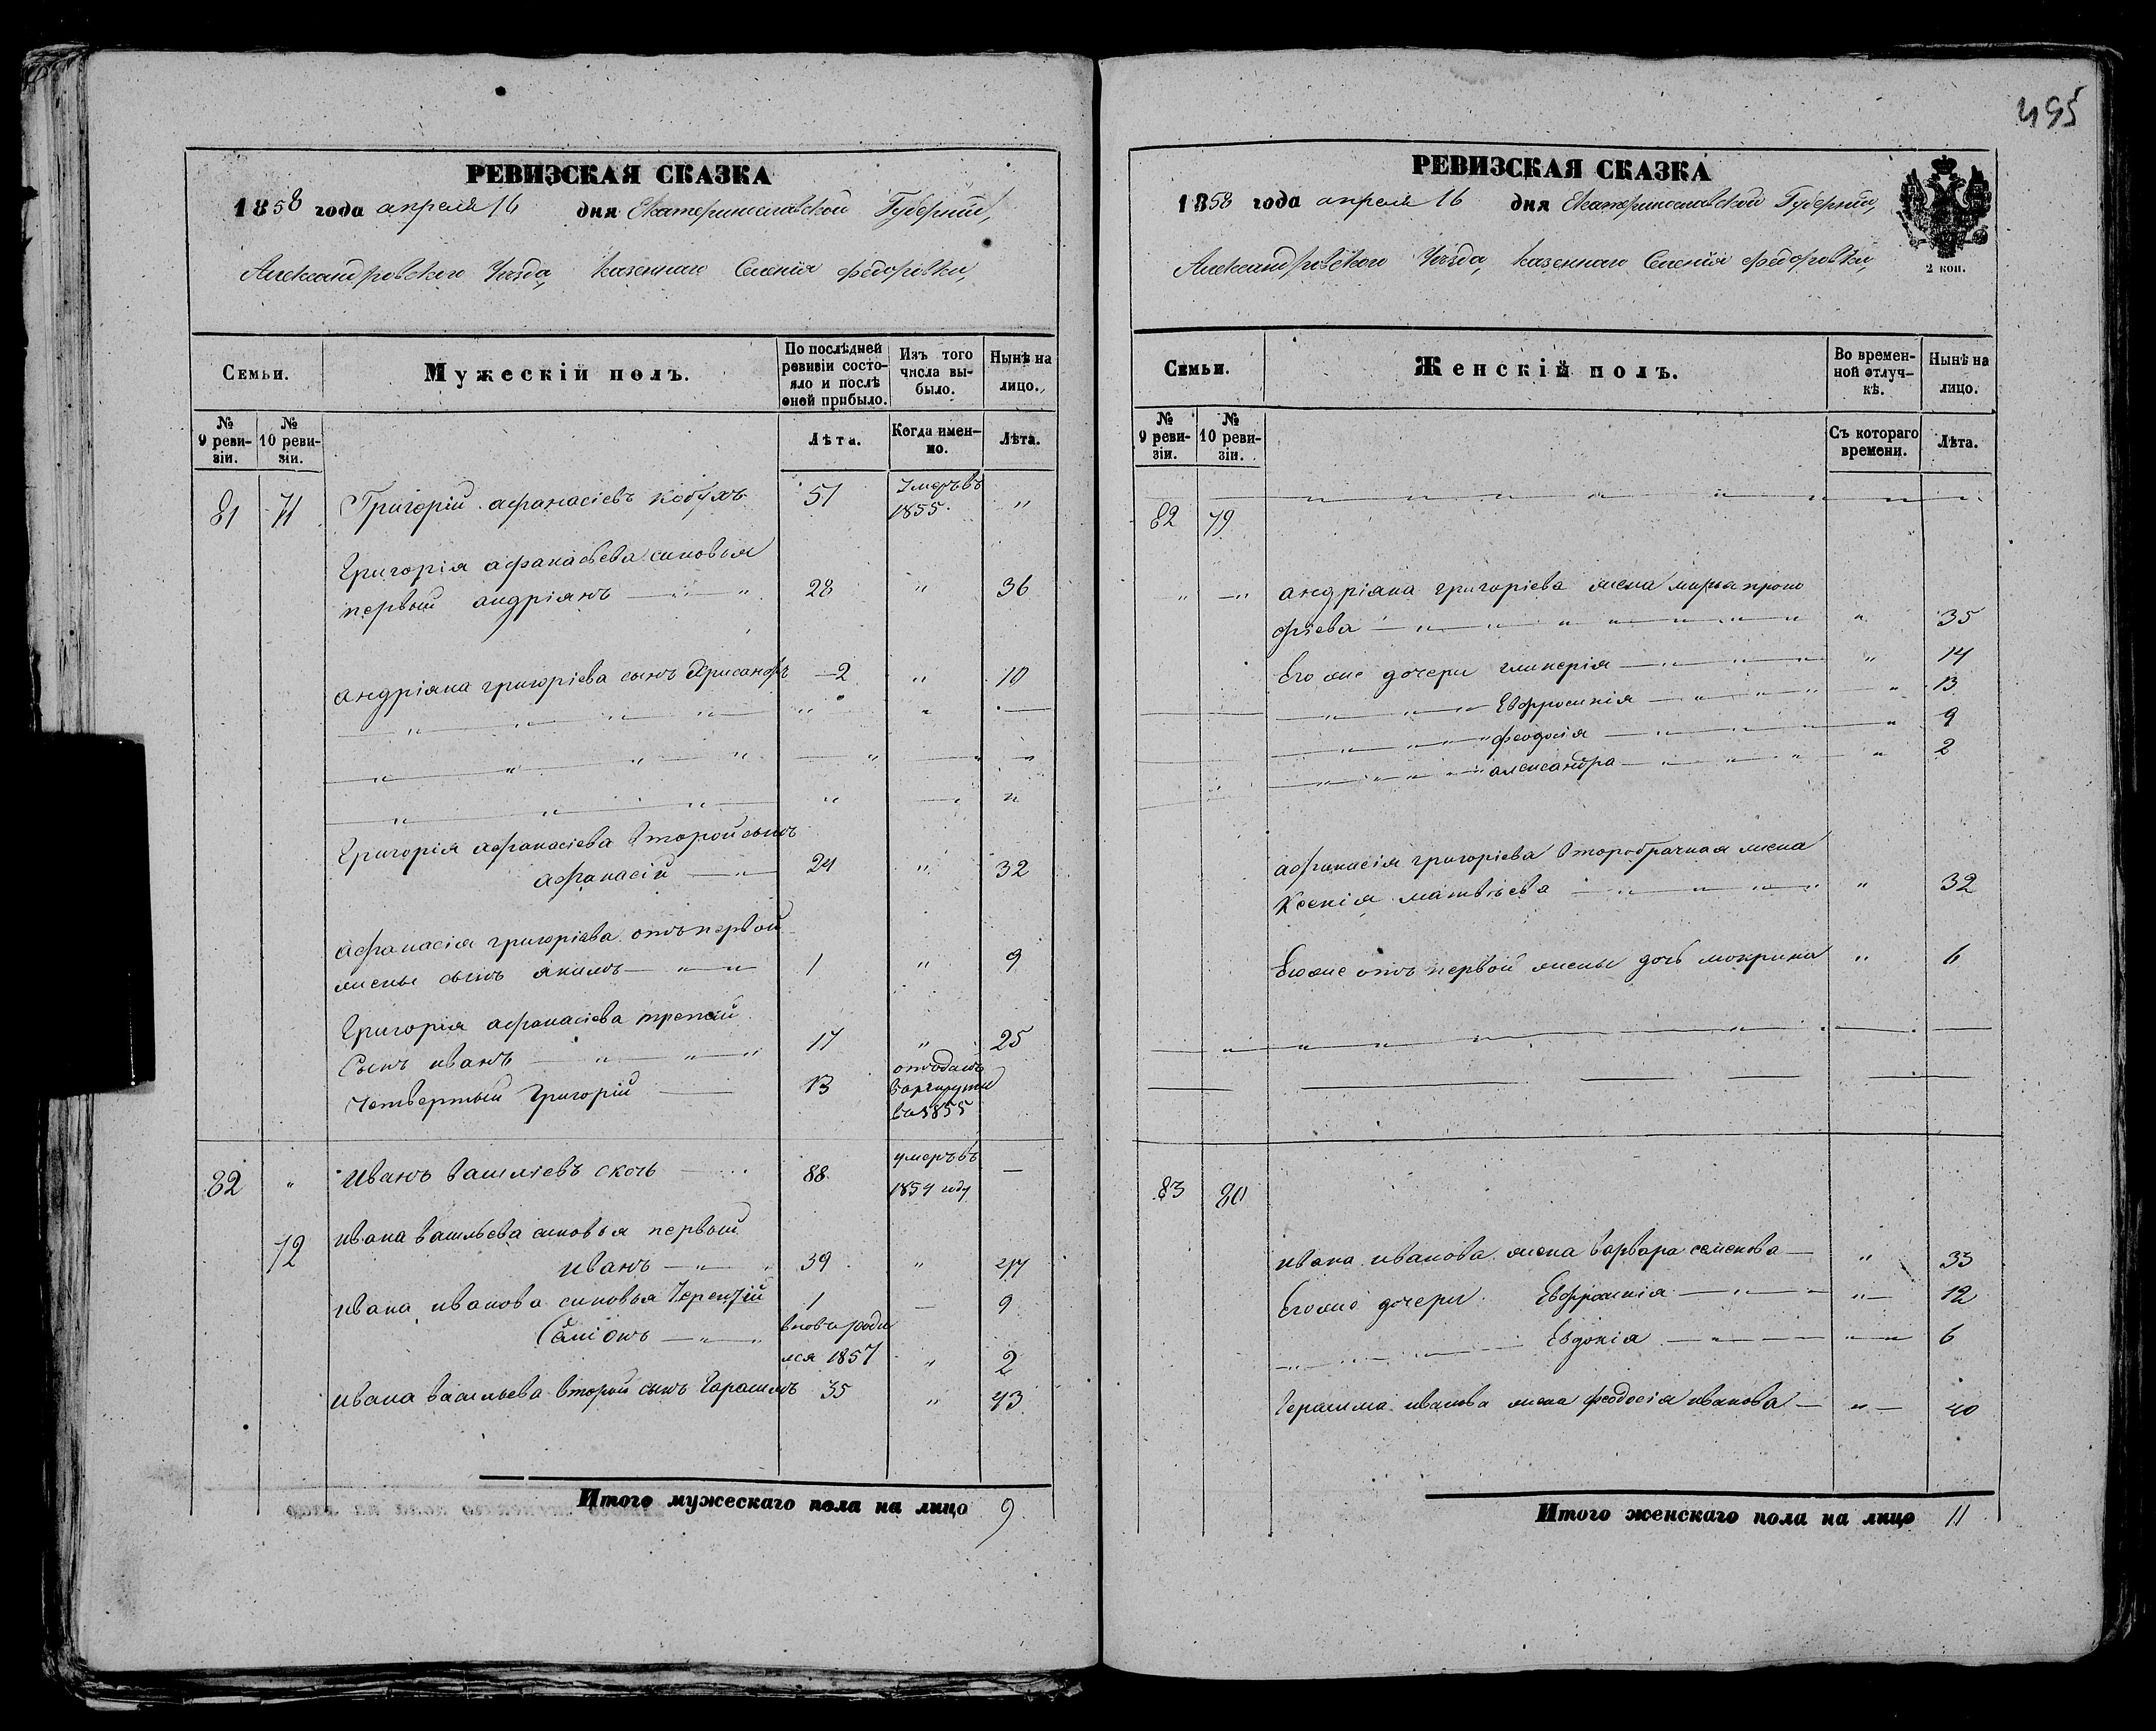 РЕВИЗСКАЯ СКАЗКА
1858 года апреля 16 дня Екатеринославской Губернии,
Александровского Уѣзда, казеннаго Селенія Федоровки,
Семьи.
Мужескій полъ.
По послѣдней ревизіи состояло и послѣ оной прибыло.
Изъ того числа выбыло.
Нынѣ на лицо.
№ 9 ревизіи.
№ 10 ревизіи.
Лѣта.
Когда именно.
Лѣта.
81 71 Григорій афанасіевъ 51 Умеръ въ 1855 "
Григорія афанасьева сыновья
первый андріянъ 28 " 36
андріяна григоріева сынъ Хрисанфъ 2 " 10
Григорія афанасіева второй сынъ
афанасій 24 " 32
афанасія григоріева отъ первой
жены сынъ якимъ 1 " 9
Григорія афанасіева третій
Сынъ иванъ 17 " 25
Четвертый Григорій 13 отоданъ в рекруты въ 1855
82 " иванъ василіевъ скочь 88 умеръ въ 1854 году —
72 ивана васильева сыновья первый
иванъ 39 " 47
ивана иванова сыновья Терентій 1 — 9
Симіонъ вновь родился 1857 " 2
ивана васильева второй сынъ Герасимъ 35 " 43
Итого мужескаго пола на лицо 9
495
РЕВИЗСКАЯ СКАЗКА
1858 года апреля 16 дня Екатеринославской Губернии,
Александровского Уѣзда, казеннаго Селенія Федоровки,
2 коп.
Семьи.
Женскій полъ.
Во временной отлучкѣ.
Нынѣ на лицо.
№ 9 ревизіи.
№ 10 ревизіи.
Съ котораго времени.
Лѣта.
82 79
андріяна григоріева жена марья проко
фіева " 35
Его же дочери гликерія " 14
Евфросинія " 13
феодосія " 9
александра " 2
афанасія григоріева второбрачная жена
Ксенія матвіева " 32
Его же отъ первой жены дочь мокрина " 6
83 80
ивана иванова жена варвара семенова " 33
Его же дочери Евфросинія " 12
Евдокія " 6
Герасима иванова жена феодосія иванова " 40
Итого женскаго пола на лицо 11